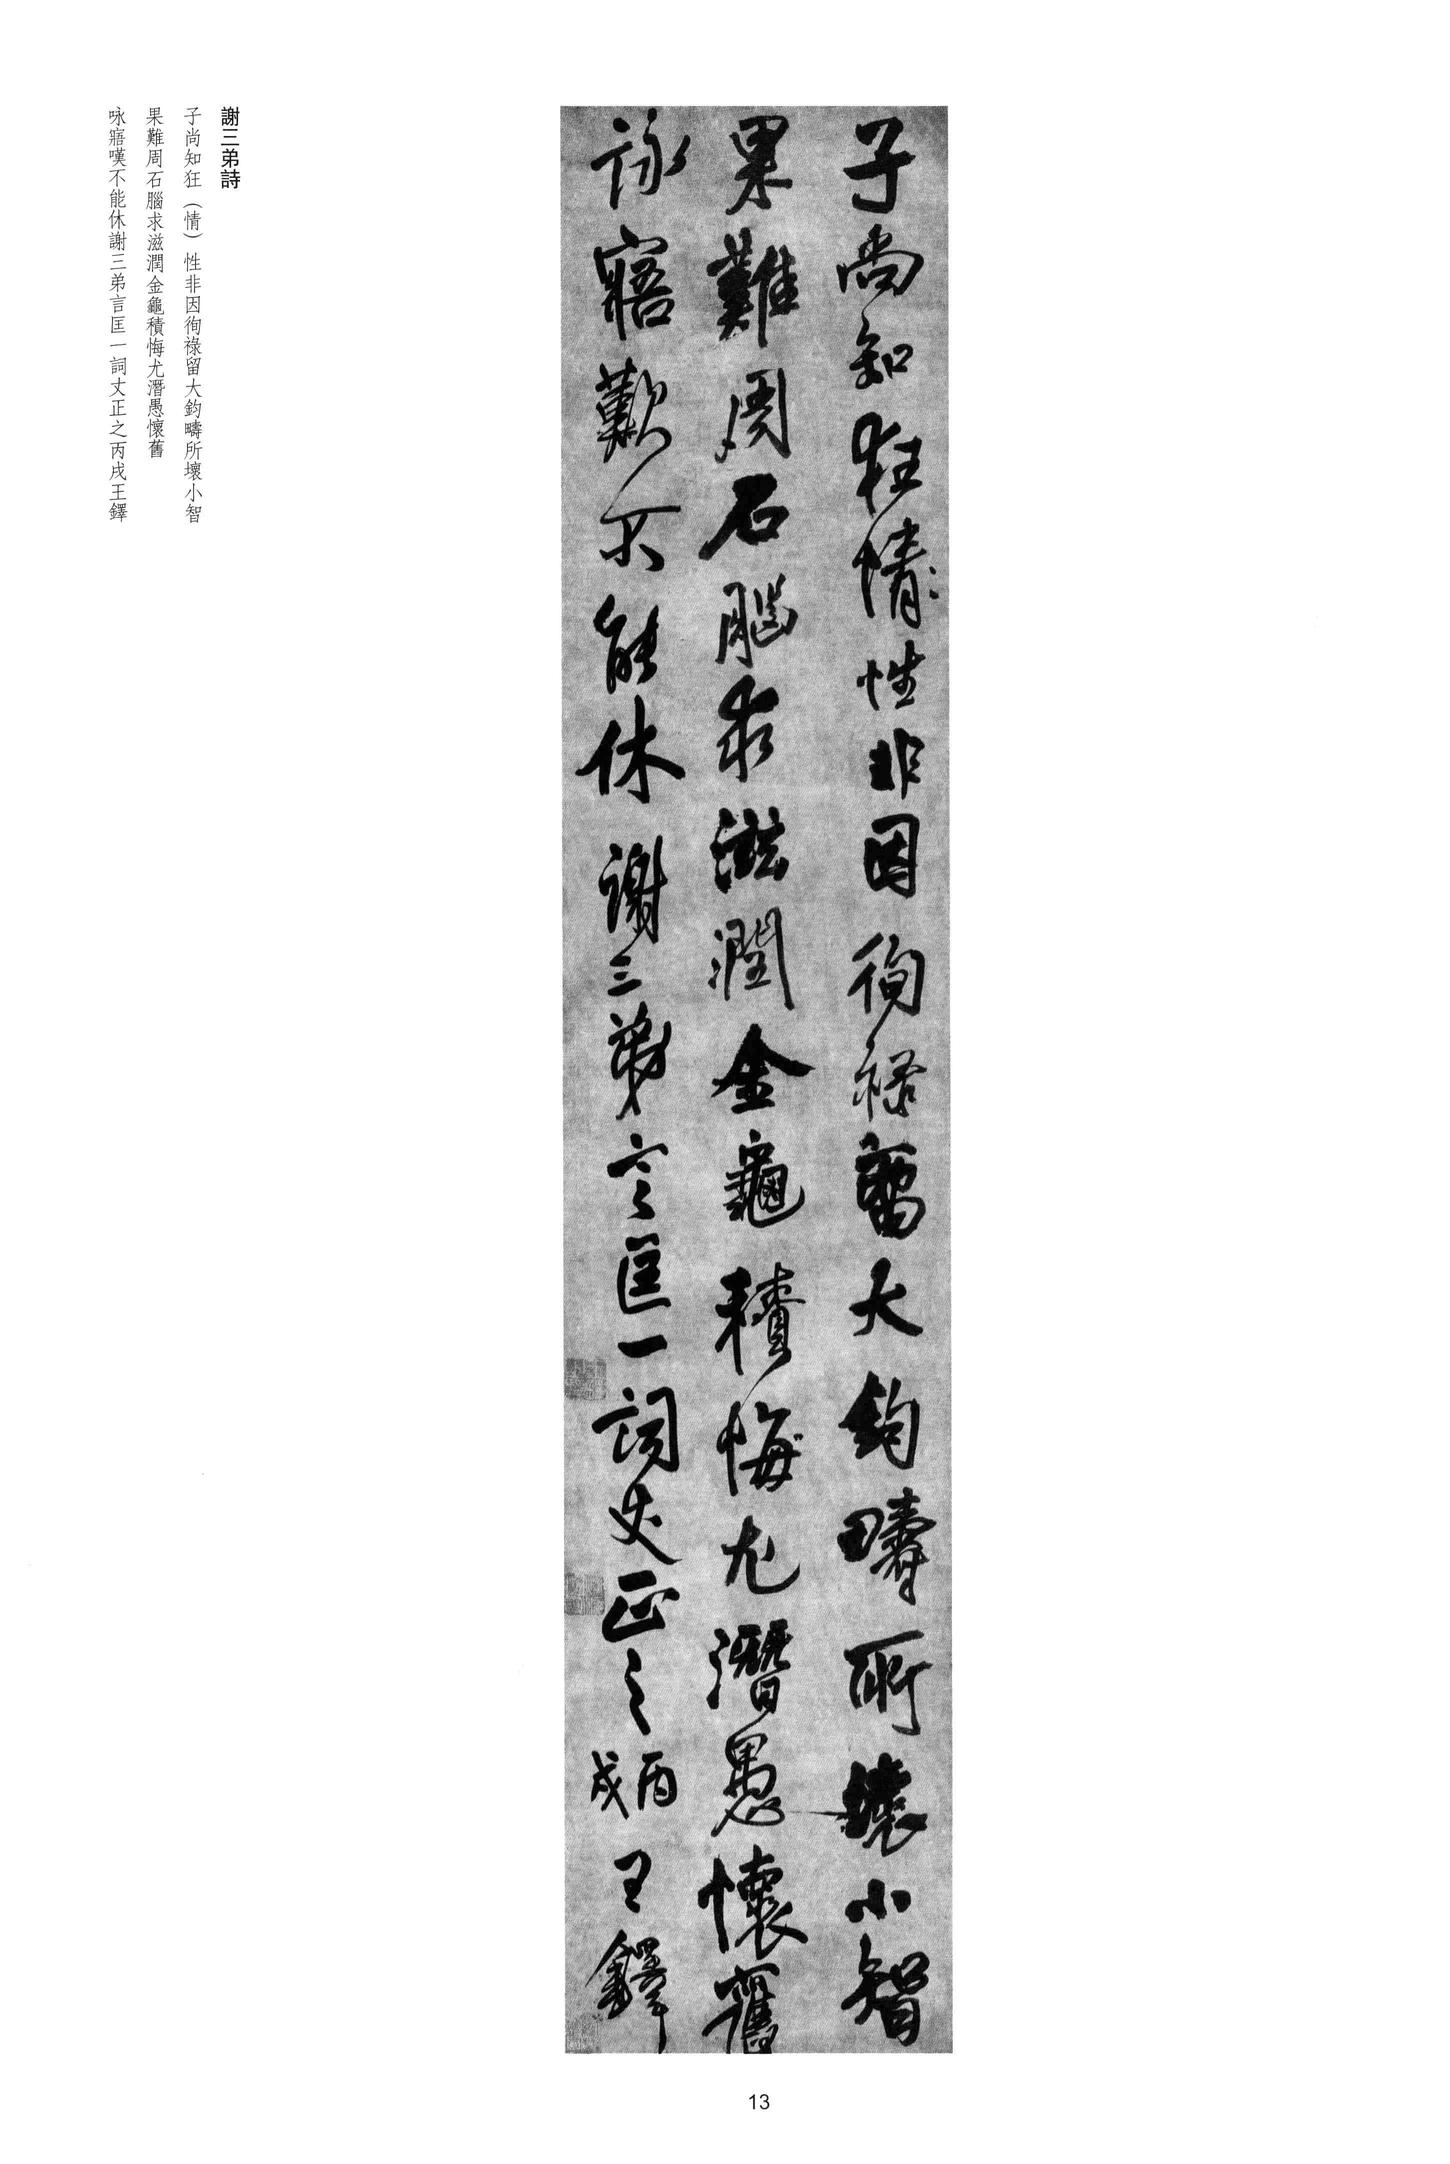 子尚知狂情性非因徇祿留大鈞疇所壞小智
果難周石腦求滋潤金龜積悔尤潛愚懷舊
詠寤歎不能休謝三弟言匡一詞丈正之丙戌王鐸
謝三弟詩
子尚知狂（情）性非因徇祿留大鈞疇所壞小智
果難周石腦求滋潤金龜積悔尤潛愚懷舊
咏寤嘆不能休謝三弟言匡一詞丈正之丙戌王鐸
13